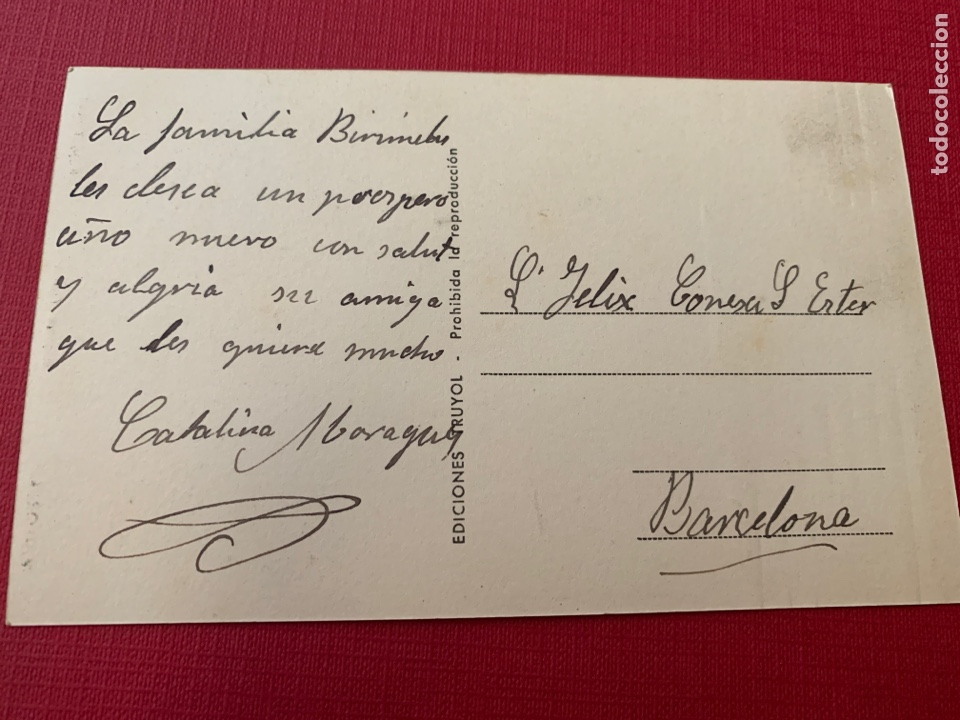 La familia
les desea un prospero
año nuevo con salut
y algria su amiga
que les quiere mucho
Catalina Moragues
EDICIONES TRUYOL - Prohibida la reproducción
Felix
Barcelona
todocoleccion